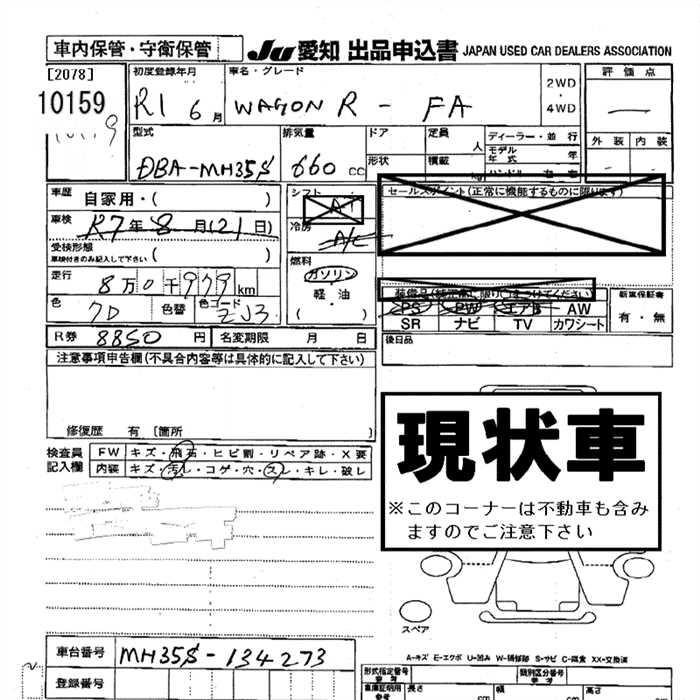 車内保管・守衛保管
JU愛知 出品申込書 JAPAN USED CAR DEALERS ASSOCIATION
[2078]
10159
初度登録年月
R1 6月
車名・グレード
WAGON R - FA
2WD
・
4WD
評価点
外装 内装
型式
DBA-MH35S
排気量
660 cc
ドア
形状
定員 人
積載 kg
ディーラー・並行
モデル年式 年
ハンドル 左・右
車歴
自家用・( )
車検
R7年8月(21日)
受検形態
車検付きのみ記入して下さい ( )
走行
8万0千979km
色
7D
色替
色コード
ZJ3
シフト
AT
冷房
A/C
燃料
ガソリン
・
軽・油
( )
セールスポイント(正常に機能するものに限ります)
装備品(純正品に限り○をつけてください)
PS PW エアB AW
SR ナビ TV カワシート
新車保証書
有・無
後日品
R券 8850円
名変期限 月 日
注意事項申告欄(不具合内容等は具体的に記入して下さい)
修復歴 有 [箇所 ]
検査員
記入欄
FW キズ・飛石・ヒビ割・リペア跡・X要
内装 キズ・汚レ・コゲ・穴・スレ・キレ・破レ
現状車
※このコーナーは不動車も含み
ますのでご注意下さい
スペア
A-キズ E-エクボ U-凹み W-補修跡 S-サビ C-腐食 XX-交換済
車台番号
MH35S-134273
登録番号
型式指定番号
参考
類別区分番号
参考
車庫証明用
参考
長さ cm
幅 cm
高さ cm